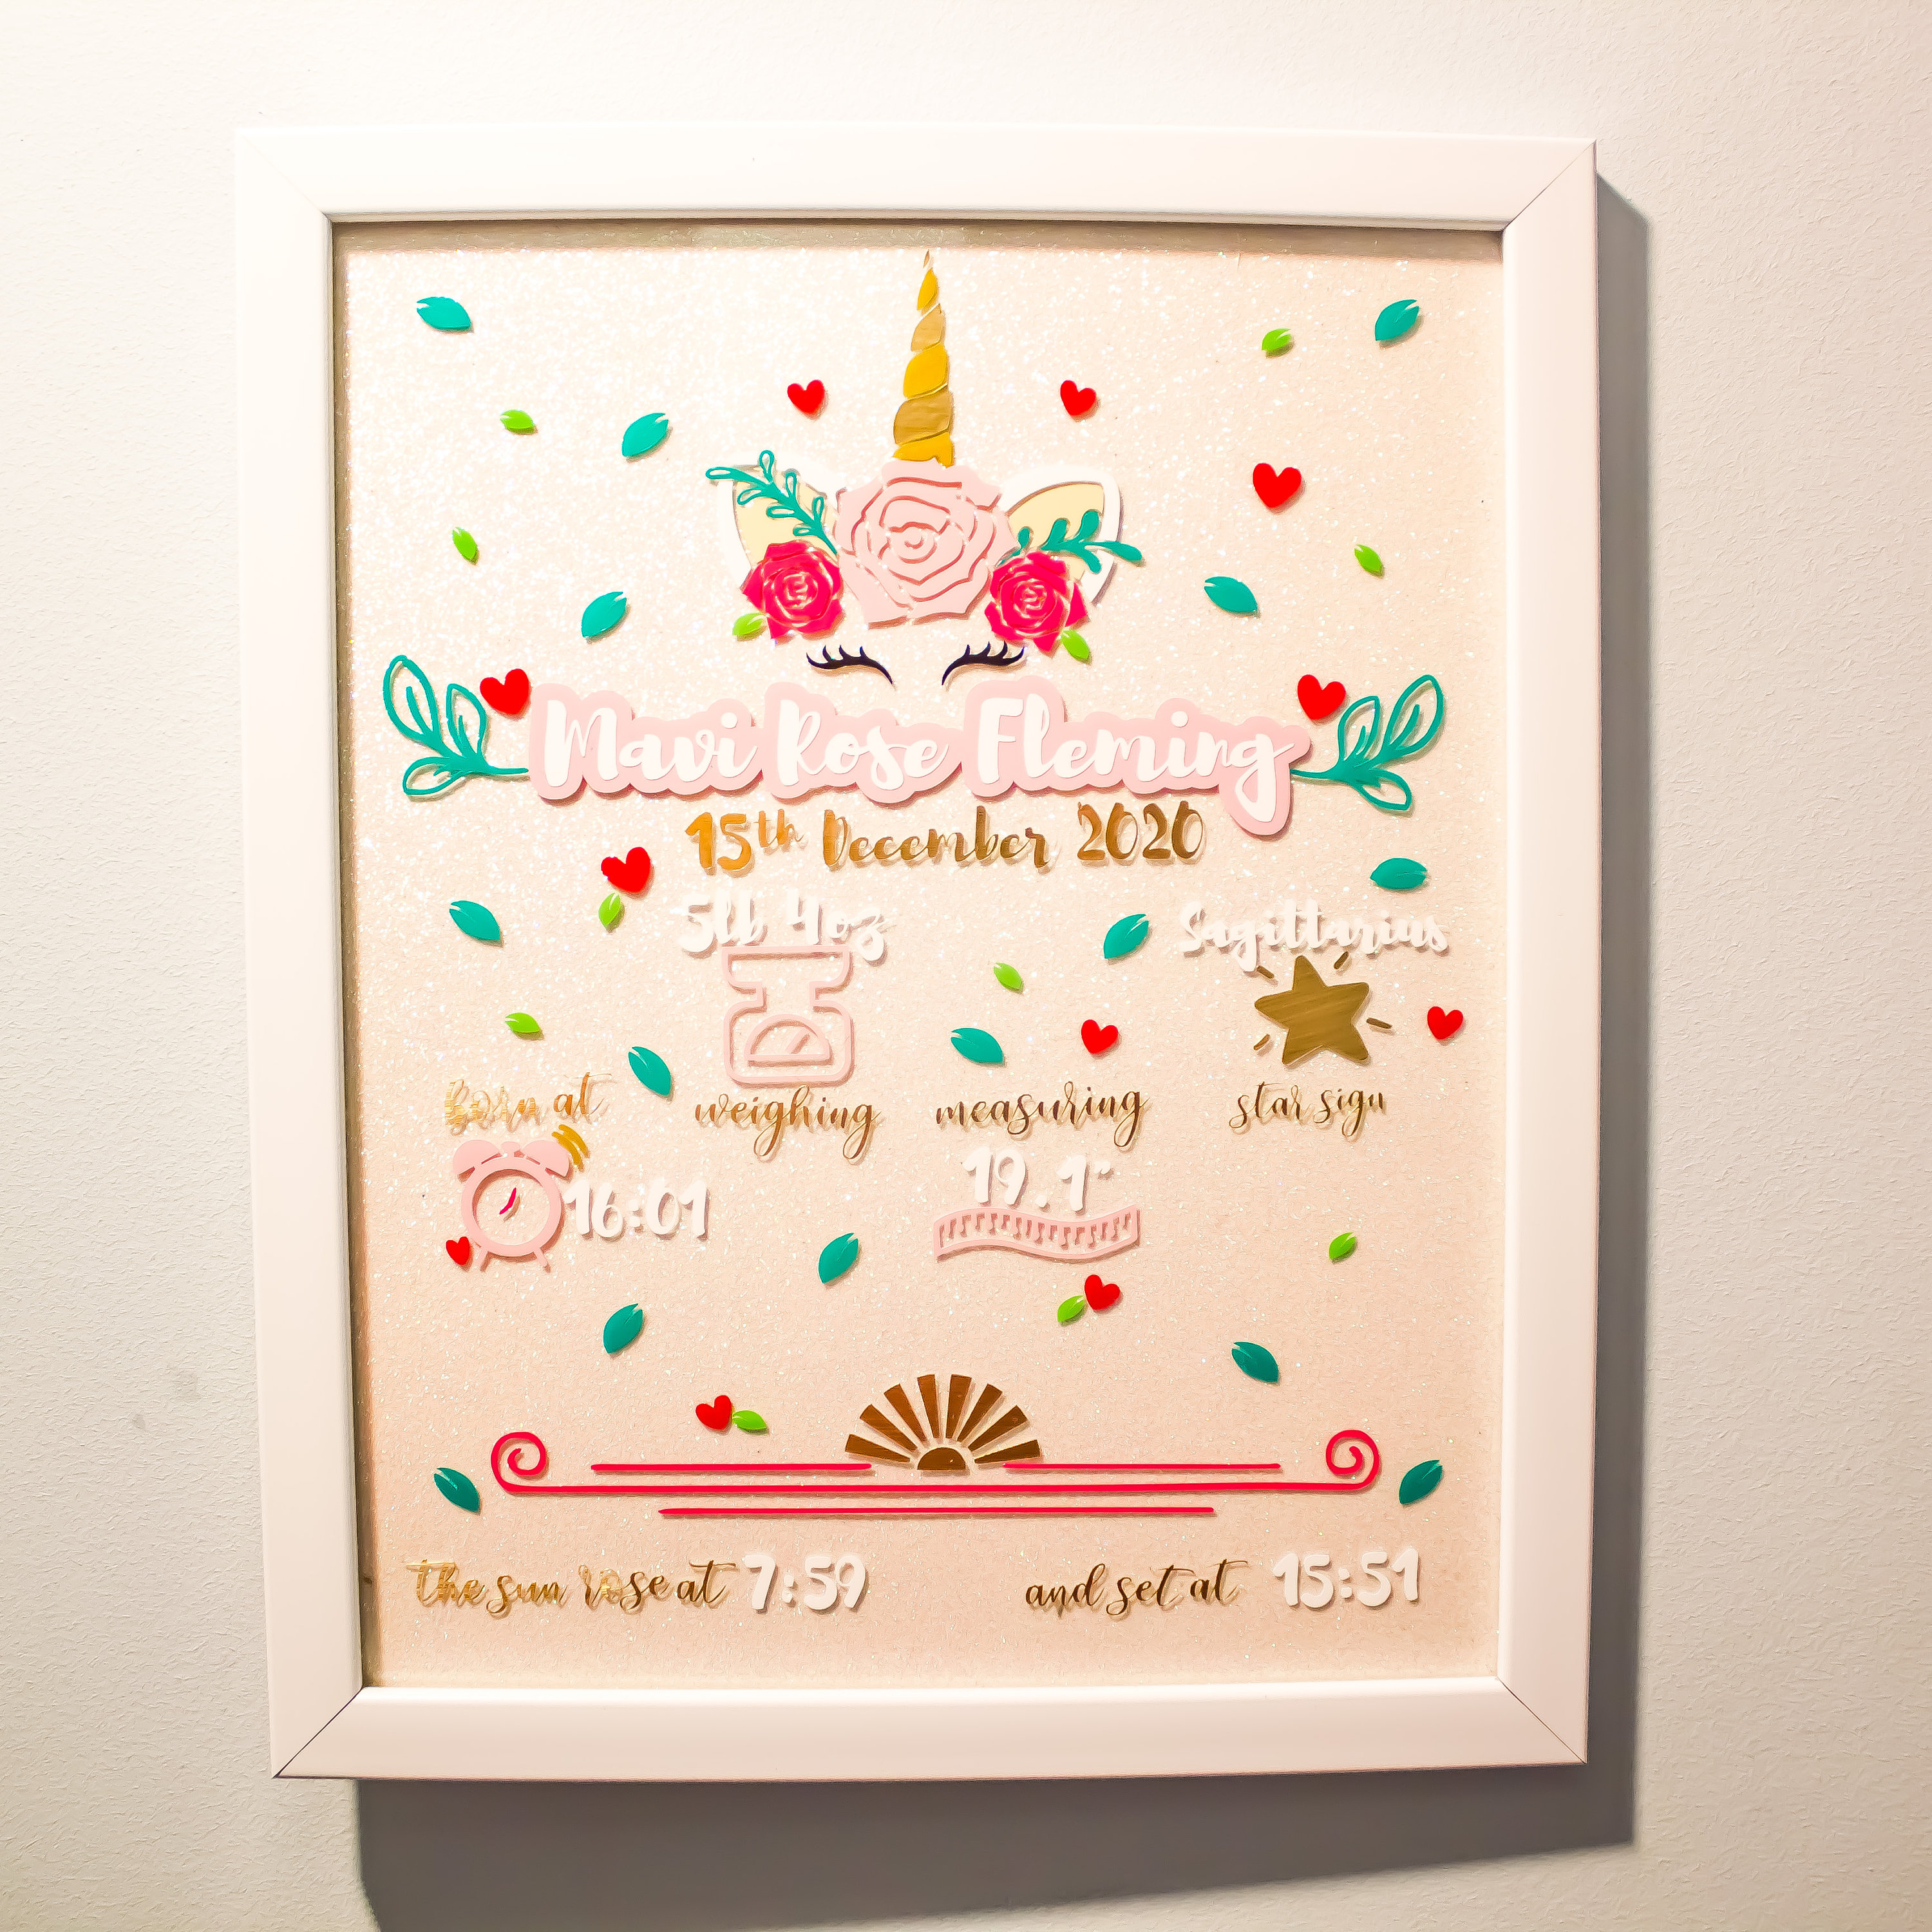 Mavi Rose Fleming
15th December 2020
5lb 4oz
Sagittarius
born at
weighing
measuring
star sign
16:01
19.1"
the sun rose at 7:59
and set at 15:51